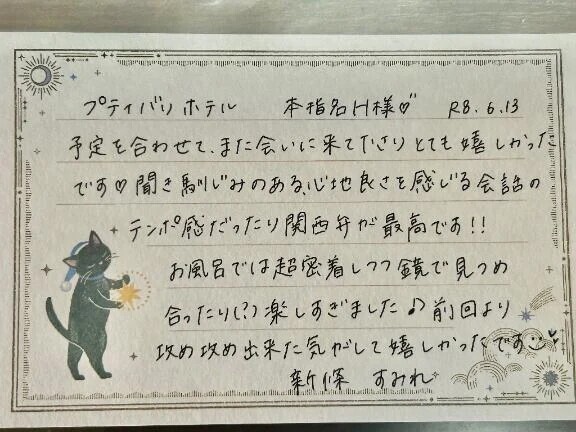 プティバリホテル 本指名H様♡ R8.6.13
予定を合わせて、また会いに来て下さりとても嬉しかった
です♡聞き馴じみのある、心地良さを感じる会話の
テンポ感だったり関西弁が最高です!!
お風呂では超密着しつつ鏡で見つめ
合ったり(?)楽しすぎました♪前回より
攻め攻め出来た気がして嬉しかったです
新條 すみれ